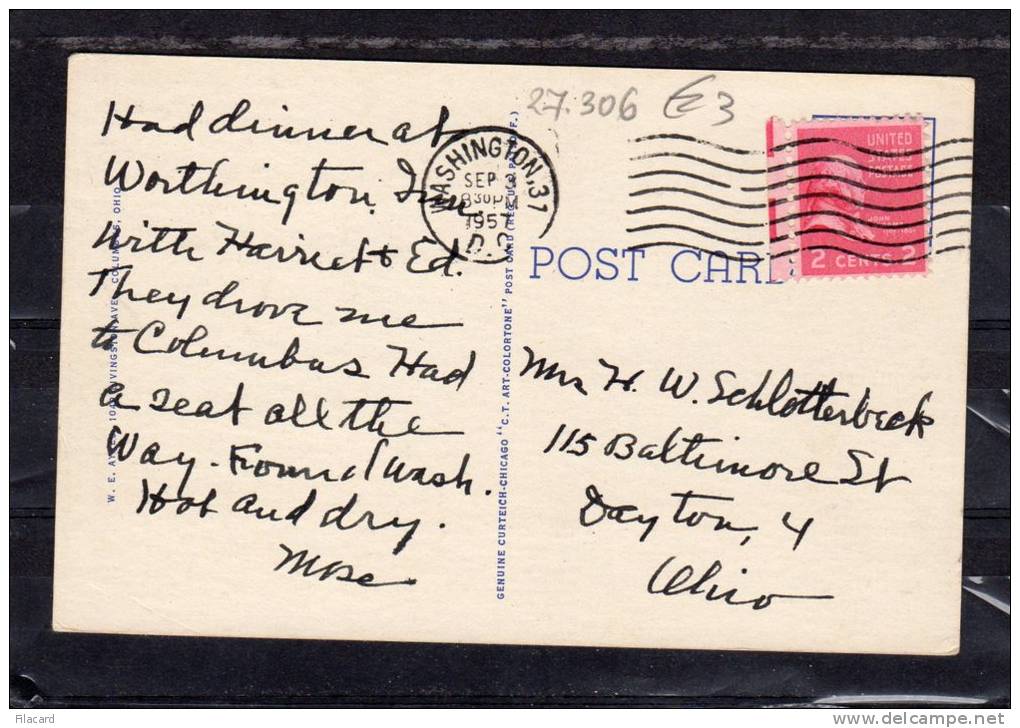 Had dinner at
Worthington Inn
With Harriet & Ed.
They drove me
to Columbus Had
a seat all the
Way. Found Wash.
Hot and dry.
Mose
27.306 E3
WASHINGTON, 31
SEP
830 PM
1957
D.C.
UNITED
STATES
POSTAGE
JOHN
2 CENTS 2
POST CARD
Mrs H. W. Schlotterbeck
115 Baltimore St
Dayton, 4
Ohio
GENUINE CURTEICH-CHICAGO "C.T. ART-COLORTONE" POST CARD (REG. U.S. PAT. OFF.)
W. E. LIVINGSTON AVE. COLUMBUS, OHIO
Filacard
www.delcampe.net